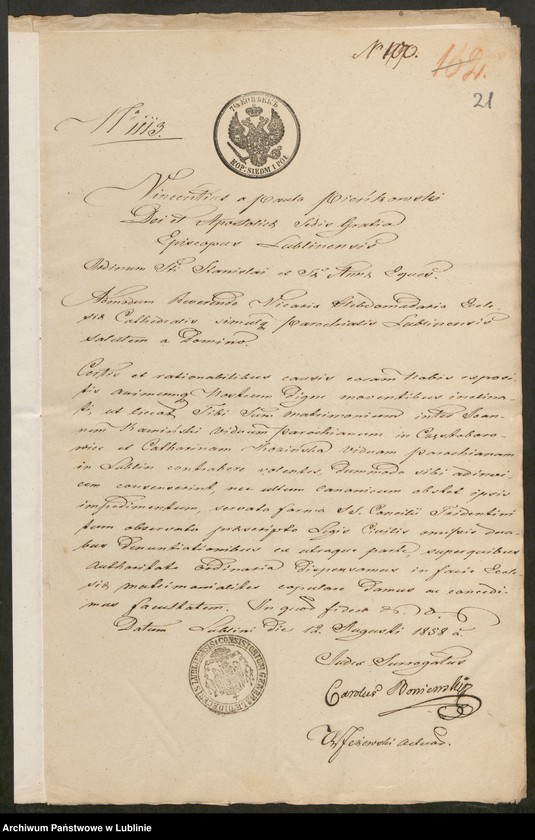 N 190.
162.
21
No 1113.
7½ КОПѢЕКЪ
KOP. SIEDM I PÓŁ
Vincentius a Paulo Pieńkowski
Dei et Apostolicæ Sedis Gratia
Episcopus Lublinensis
Ordinum Sti Stanislai et Stæ Annæ Eques.
Admodum Reverendo Vicario Hebdomadario Eccle-
siæ Cathedralis simulq Parochialis Lublinensis
salutem a Domino.
Certis et rationabilibus causis coram Nobis exposi-
tis animumq Nostrum digne moventibus inclina-
ti, ut liceat Tibi matrimonium inter Joan-
nem Kamiński viduum parochianum in
et Catharinam viduam parochianam
in Lublin contrahere volentes, dummodo sibi adinvi-
cem consenserint, nec ullum canonicum obstet ipsis
impedimentum, servata forma SS. Concilii Tridentini
tum observato præscripto Legis Civilis omissis dua-
bus denuntiationibus ex utraque parte, superquibus
Authoritate Ordinaria dispensamus in facie Eccle-
siæ matrimonialiter copulare damus ac concedi-
mus facultatem. In quor fidem
Datum Lublini die 12 Augusti 1858 a.
Judex Surrogatus
Carolus
actuar.
Archiwum Państwowe w Lublinie